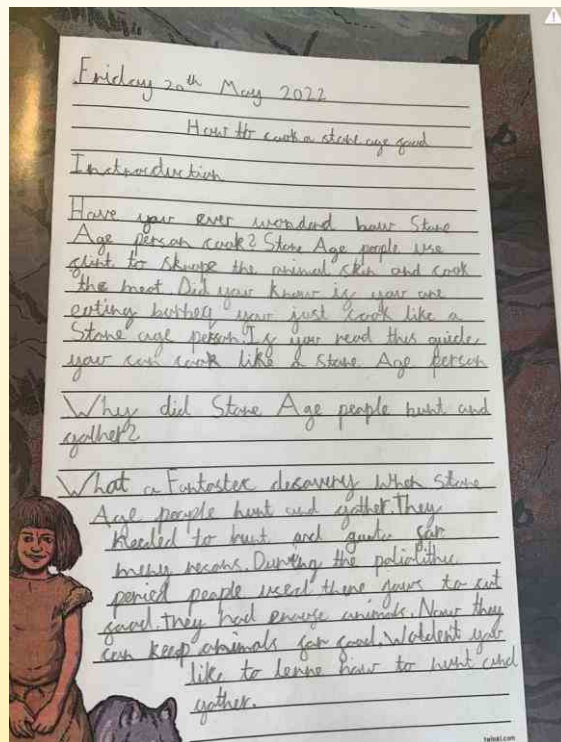 Friday 20th May 2022
How to cook a stone age food
Instroduction
Have you ever wonderd how Stone
Age person cook? Stone Age people use
flint to skrape the animal skin and cook
the meat Did you know if you are
eating barbeq your just cook like a
Stone age person. If you read this guide,
you can cook like a Stone Age person
Why did Stone Age people hunt and
gather?
What a Fantastec descavery when Stone
Age people hunt and gather. They
needed to hunt and for
meny resons. During the paliolithic
period people used there jaws to cut
food. they had animals. Now they
can keep animals for food. Woldent you
like to lenne how to hunt and
gather.
twinkl.com